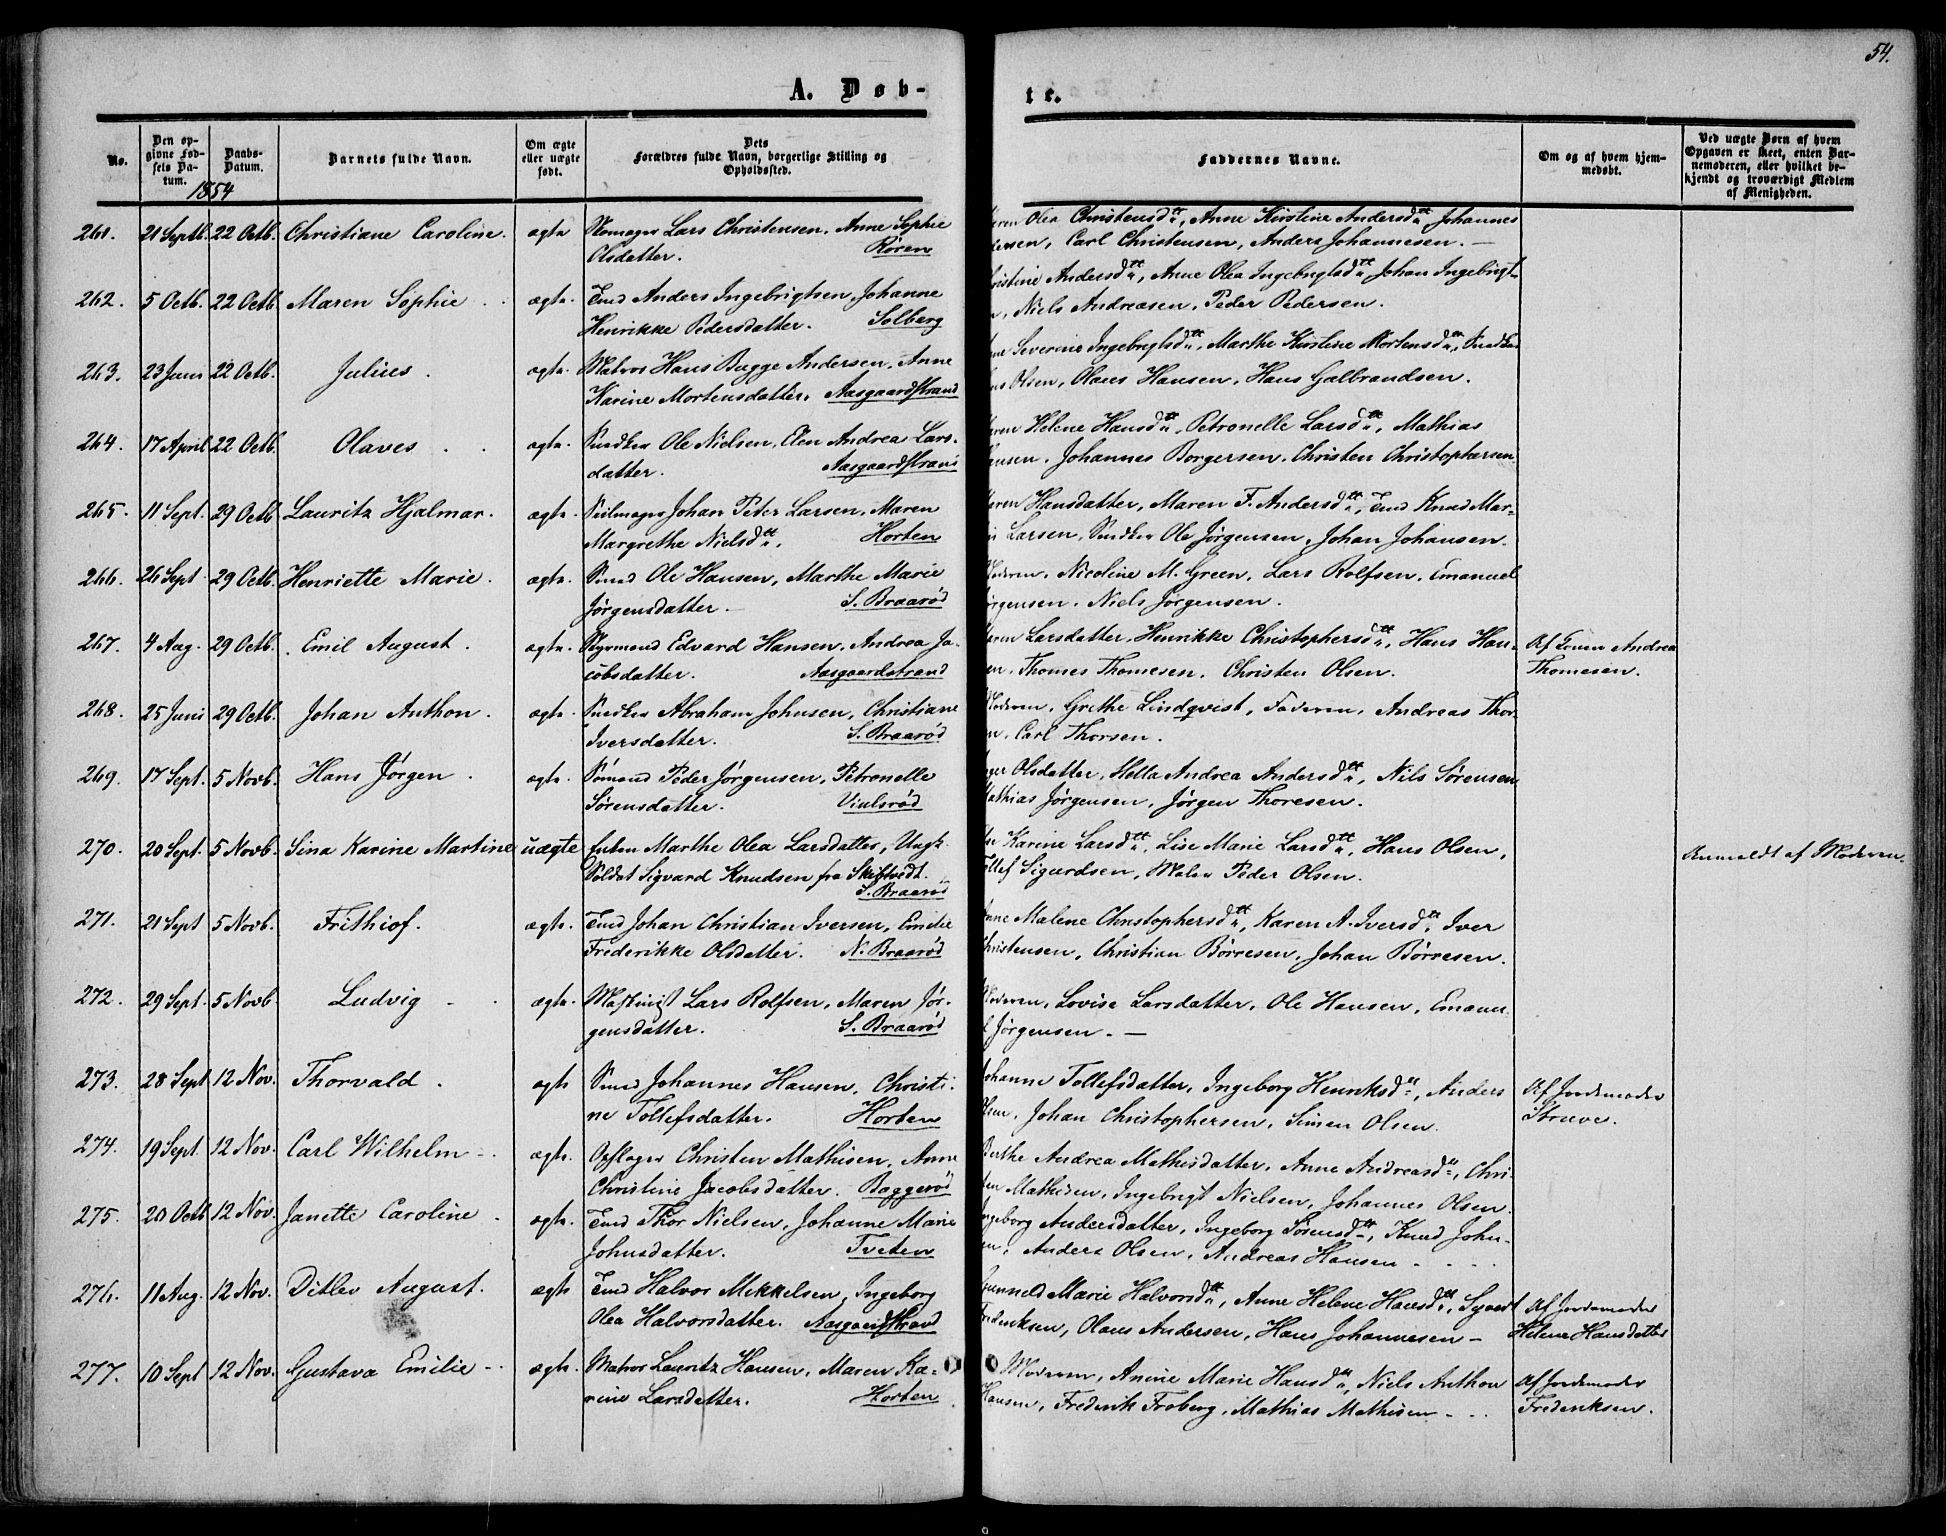 54.
A. Døb-
te.
No.
Den op-
givne Fød-
sels Da-
tum.
Daabs-
Datum.
Barnets fulde Navn.
Om ægte
eller uægte
født.
Dets
Forældres fulde Navn, borgerlige Stilling og
Opholdssted.
Faddernes Navne.
Om og af hvem hjem-
medøbt.
Ved uægte Børn af hvem
Opgaven er skeet, enten Bar-
nemoderen, eller hvilket be-
kjendt og troværdigt Medlem
af Menigheden.
1854
261. 21 Septb. 22 Octb. Christiane Caroline. ægte Skomager Lars Christensen, Anne Sophie
Olsdatter. Røren
Olea Christensdtr, Anne Kirstine Andersdtr, Johannes
Carl Christensen, Anders Johannesen. —
262. 5 Octb. 22 Octb. Maren Sophie . . ægte. Tmd Anders Ingebrigtsen, Johanne
Henrikke Pedersdatter. Solberg
Andersdtr, Anne Olea Ingebrigtsdtr, Johan Ingebrigt-
Niels Andreasen, Peder Pedersen.
263. 23 Juni 22 Octb. Julius . ægte. Matros Hans Bagge Andersen, Anne
Karine Mortensdatter. Aasgaardstrand
Severine Ingebrigtsdtr, Marthe Kirstine Mortensdtr, Snedker
Olsen, Olaus Hansen, Hans Galbrandsen.
264. 17 April 22 Octb. Olaves . . ægte. Snedker Ole Nielsen, Elen Andrea Lars-
datter. Aasgaardstrand
Helene Hansdtr, Petronelle Larsdtr, Mathias
Johannes Borgersen, Christen Christophersen
265. 11 Sept. 29 Octb Lauritz Hjalmar. ægte. Seilmager Johan Peter Larsen, Maren
Margrethe Nielsdtr. Horten
Hansdatter, Maren F. Andersdtr, Tmd Knud Mar-
Larsen, Snedker Ole Jørgensen, Johan Johansen.
266. 26 Sept 29 Octb. Henriette Marie. ægte. Smed Ole Hansen, Marthe Marie
Jørgensdatter. — S. Braarød
Moderen, Nicoline M. Green, Lars Rolfsen, Emanuel
Jørgensen, Niels Jørgensen.
267. 4 Aug. 29 Octb. Emil August. ægte. Styrmand Edvard Hansen, Andrea Ja-
cobsdatter. Aasgaardstrand
Larsdatter, Henrikke Christophersdtr, Hans Han-
Thomes Thomesen, Christen Olsen.
Af Andrea
Thomesen.
268. 25 Juni 29 Octb. Johan Anthon. ægte. Snedker Abraham Johnsen, Christiane
Iversdatter. S. Braarød
Moderen, Grethe Lindqvist, Faderen, Andreas Thor-
Carl Thorsen.
269. 17 Sept. 5 Novb. Hans Jørgen . ægte. Sømand Peder Jørgensen, Petronelle
Sørensdatter. Viulsrød
Olsdatter, Hella Andrea Andersdtr, Nils Sørensen
Mathias Jørgensen, Jørgen Thoresen.
270. 20 Sept. 5 Novb. Sina Karine Martine uægte Enken Marthe Olea Larsdatter, Ungk.
Soldat Sigvard Knudsen fra Skiftvedt.
S. Braarød
Karine Larsdtr, Lise Marie Larsdtr, Hans Olsen,
Tollef Sigurdsen, Maler Peder Olsen.
Anmeldt af Moderen.
271. 21 Sept 5 Novb. Frithiof. ægte. Tmd Johan Christian Iversen, Emelie
Frederikke Olsdatter. N. Braarød
Anne Malene Christophersdtr, Karen A. Iversdtr, Iver
Christensen, Christian Børresen, Johan Børresen.
272. 29 Sept. 5 Novb Ludvig - . ægte. Maskinist Lars Rolfsen, Maren Jør-
gensdatter. S. Braarød
Moderen, Lovise Larsdatter, Ole Hansen, Emanu-
el Jørgensen. —
273. 28 Sept 12 Nov. Thorvald . ægte Smed Johannes Hansen, Christi-
ne Tollefsdatter. Horten
Johanne Tollefsdatter, Ingeborg Henriksdtr, Anders
Olsen, Johan Christophersen, Simen Olsen.
Af Jordemoder
Struve.
274. 19 Sept. 12 Nov. Carl Wilhelm - . ægte. Opslager Christen Mathisen, Anne
Christine Jacobsdatter. Baggerød
Berthe Andrea Mathisdatter, Anne Andreasdtr, Chri-
sten Mathisen, Ingebrigt Nielsen, Johannes Olsen.
275. 20 Octb 12 Nov. Janette Caroline . ægte. Tmd Thor Nielsen, Johanne Marie
Johnsdatter. Tveten
Ingeborg Andersdatter, Ingeborg Sørensdtr, Knud John-
Anders Olsen, Andreas Hansen - . . .
276. 11 Aug. 12 Nov. Ditlev August. ægte Tmd Halvor Mikkelsen, Ingeborg
Olea Halvorsdatter. Aasgaardstrand
Gunnild Marie Halvorsdtr, Anne Helene Hansdtr, Syvert
Frederiksen, Olaus Andersen, Hans Johannesen —
Af Jordemoder
Helene Hansdatter
277. 10 Sept 12 Nov. Gustava Emilie - . ægte. Matros Lauritz Hansen, Maren Ka-
rine Larsdatter. Horten
Moderen, Anine Marie Hansdtr, Niels Anthon
Hansen, Frederik Froberg, Mathias Mathisen - . .
Af Jordemoder
Frederiksen.